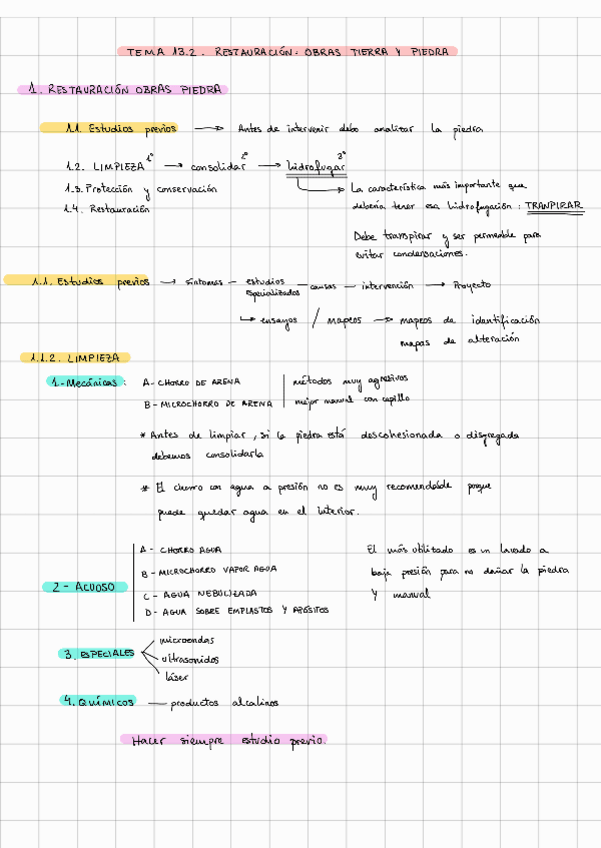 TEMA 13.2. RESTAURACIÓN: OBRAS TIERRA Y PIEDRA
1. RESTAURACIÓN OBRAS PIEDRA
1.1. Estudios previos → Antes de intervenir debo analizar la piedra
1.2. LIMPIEZA 1º → consolidar 2º → hidrofugar 3º
1.3. Protección y conservación
1.4. Restauración
La característica más importante que
debería tener esa hidrofugación: TRANPIRAR
Debe transpirar y ser permeable para
evitar condensaciones.
1.1. Estudios previos → síntomas – estudios especializados – causas – intervención → Proyecto
ensayos / mapeos → mapeos de identificación
mapas de alteración
1.1.2. LIMPIEZA
1-Mecánicas: A- CHORRO DE ARENA
B- MICROCHORRO DE ARENA
métodos muy agresivos
mejor manual con cepillo
* Antes de limpiar, si la piedra está descohesionada o disgregada
debemos consolidarla
* El chorro con agua a presión no es muy recomendable porque
puede quedar agua en el interior.
2- ACUOSO
A- CHORRO AGUA
B- MICROCHORRO VAPOR AGUA
C- AGUA NEBULIZADA
D- AGUA SOBRE EMPLASTOS Y APÓSITOS
El más utilizado es un lavado a
baja presión para no dañar la piedra
y manual
3. ESPECIALES
microondas
ultrasonidos
láser
4. QUÍMICOS — productos alcalinos
Hacer siempre estudio previo.